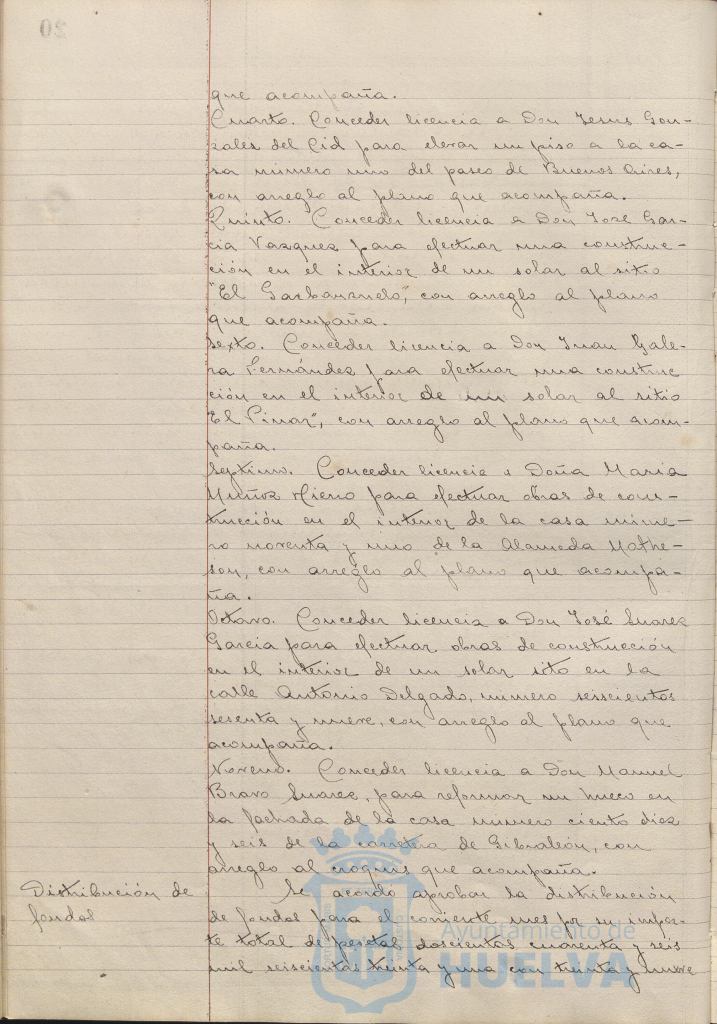 que acompaña.
Cuarto. Conceder licencia a Don Jesus Gon-
zales del Cid para elevar un piso a la ca-
sa número uno del paseo de Buenos Aires,
con arreglo al plano que acompaña.
Quinto. Conceder licencia a Don José Gar-
cia Vazquez para efectuar una construc-
ción en el interior de un solar al sitio
"El Garbanzuelo", con arreglo al plano
que acompaña.
Sexto. Conceder licencia a Don Juan Gale-
ra Fernández para efectuar una construc
ción en el interior de un solar al sitio
"El Pinar", con arreglo al plano que acom-
paña.
Septimo. Conceder licencia a Doña Maria
Muñoz Hierro para efectuar obras de cons-
trucción en el interior de la casa núme-
ro noventa y uno de la Alameda Mathe-
son, con arreglo al plano que acompa-
ña.
Octavo. Conceder licencia a Don José Suarez
Garcia para efectuar obras de construcción
en el interior de un solar sito en la
calle Antonio Delgado, numero seiscientos
sesenta y nueve, con arreglo al plano que
acompaña.
Noveno. Conceder licencia a Don Manuel
Bravo Suarez, para reformar un hueco en
la fachada de la casa número ciento diez
y seis de la carretera de Gibraleón, con
arreglo al croquis que acompaña.
Distribución de
fondos
Se acordó aprobar la distribución
de fondos para el corriente mes por su impor-
te total de pesetas doscientas cuarenta y seis
mil seiscientas treinta y una con treinta y nueve
Ayuntamiento de
HUELVA